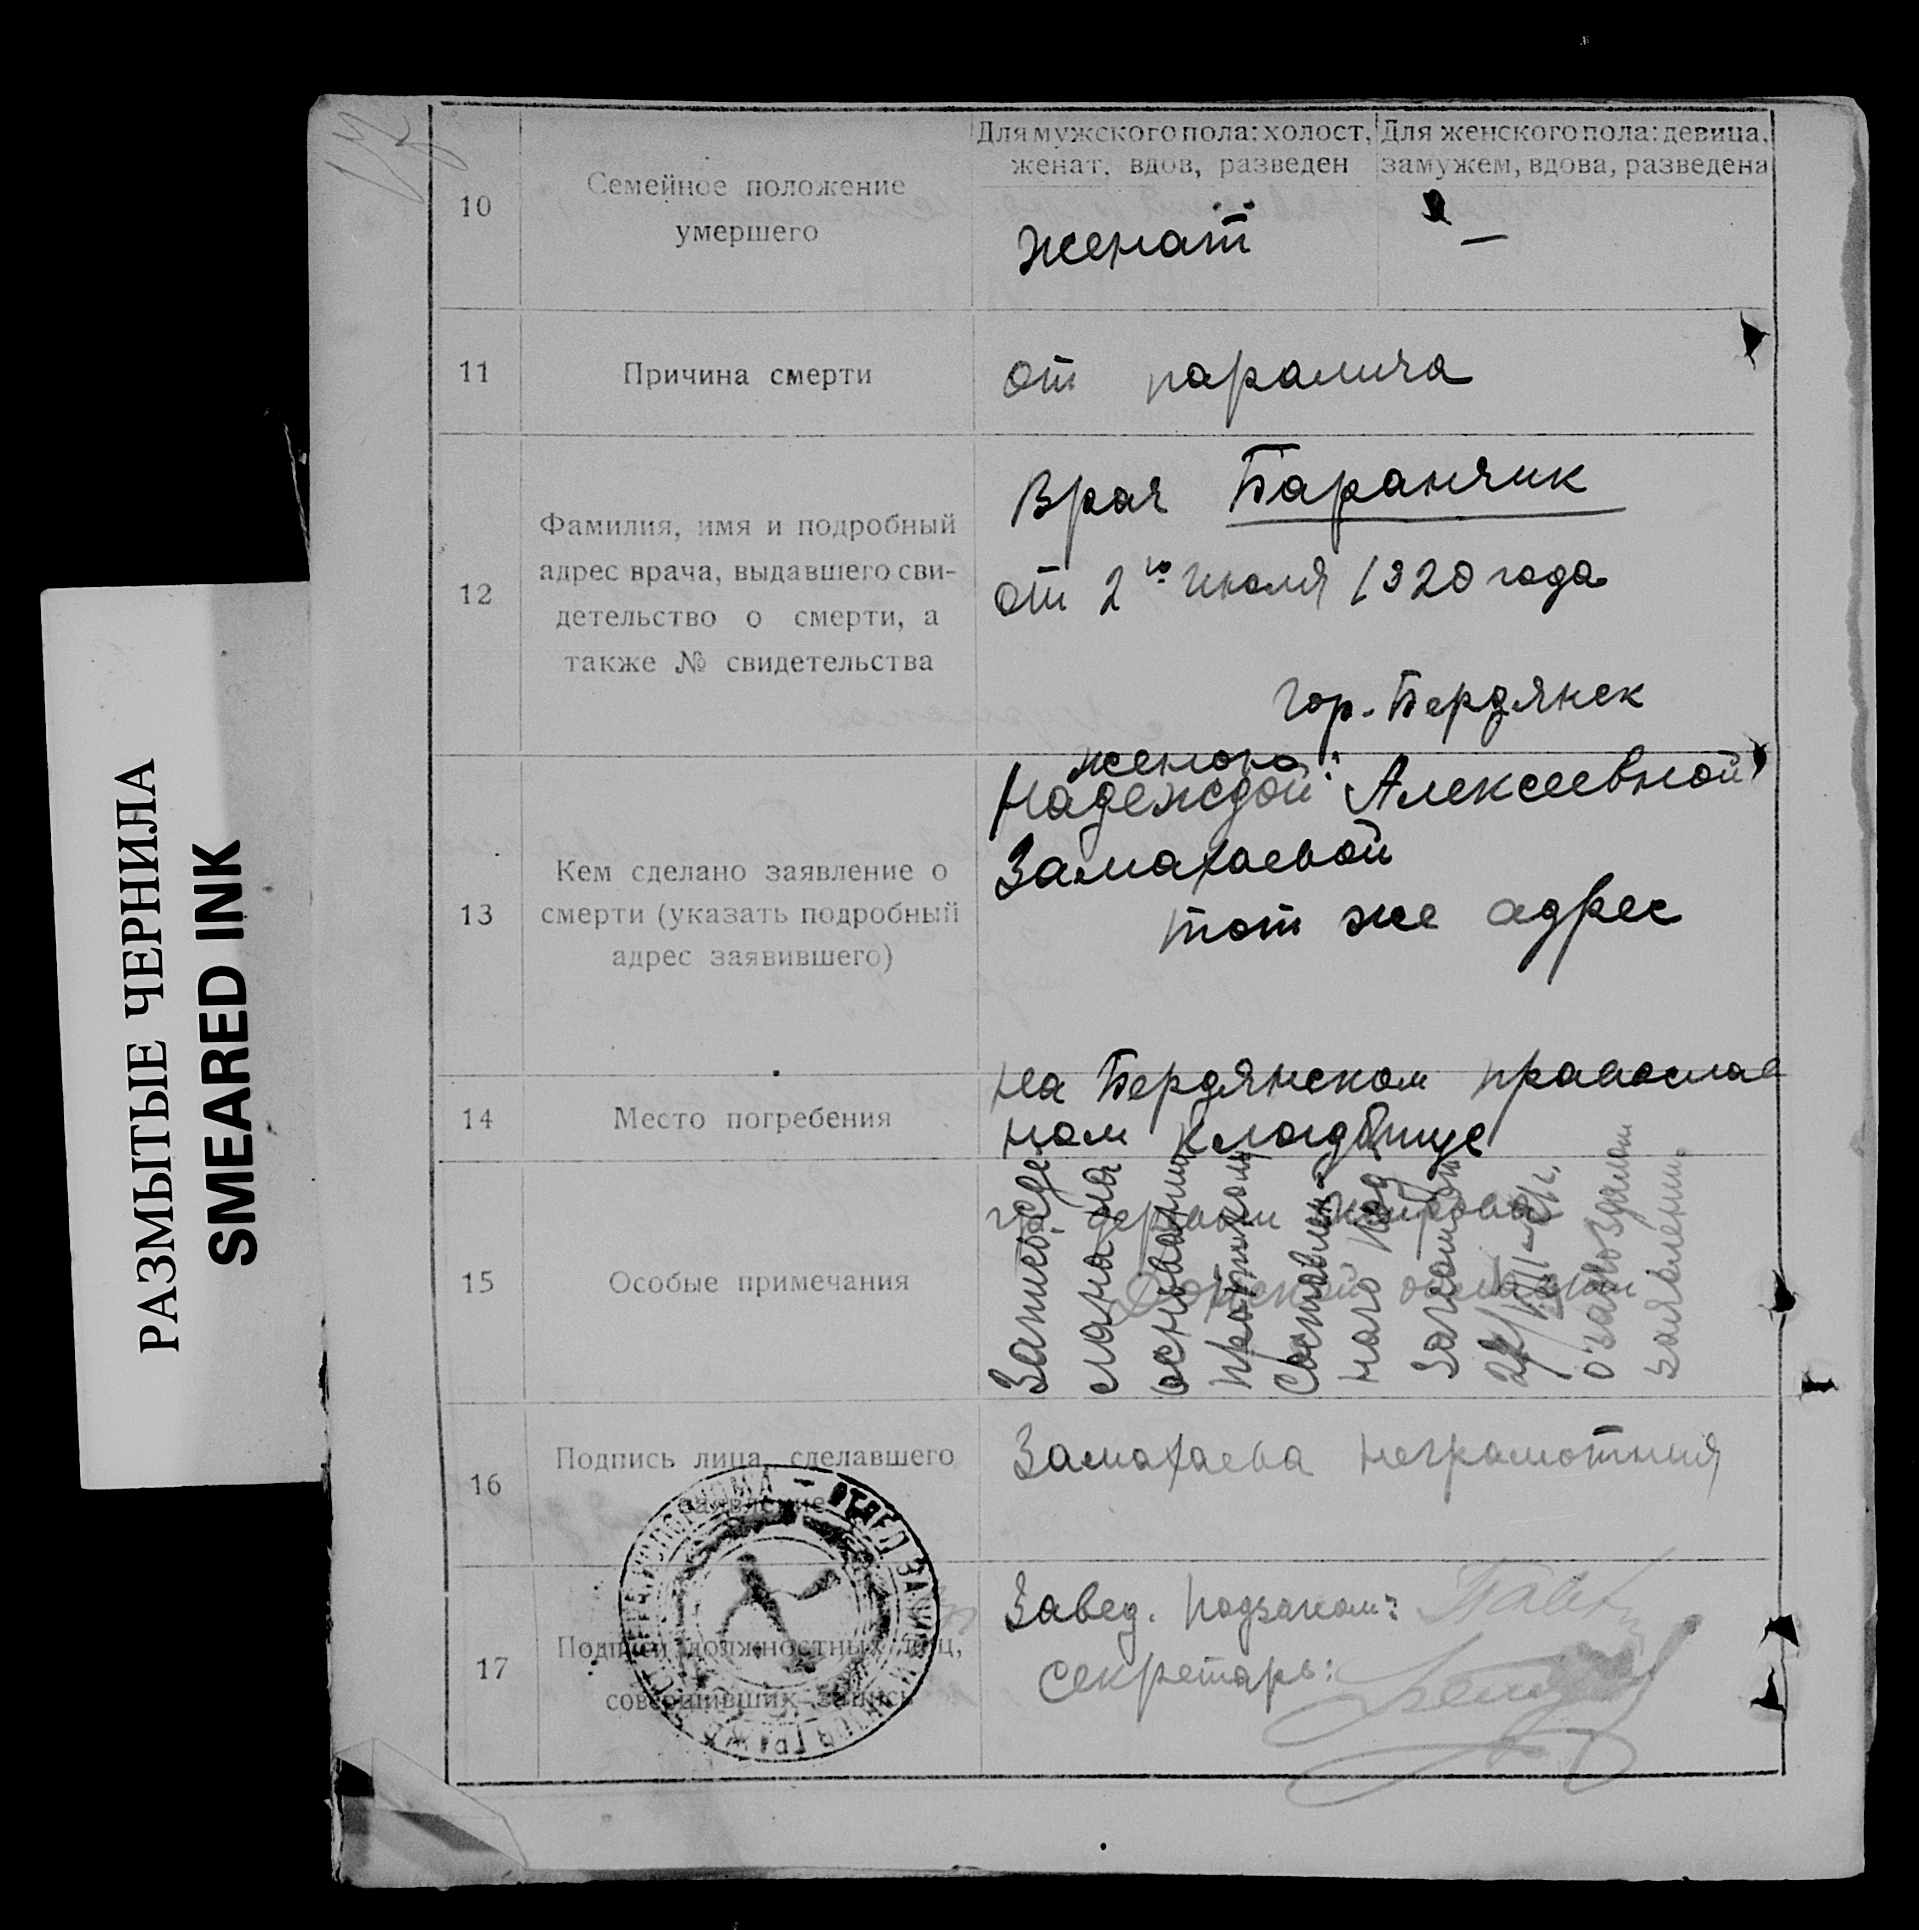 РАЗМЫТЫЕ ЧЕРНИЛА
SMEARED INK
10
Семейное положение
умершего
Для мужского пола: холост,
женат, вдов, разведен
Для женского пола: девица,
замужем, вдова, разведена
женат
—
11
Причина смерти
от паралича
12
Фамилия, имя и подробный
адрес врача, выдавшего сви-
детельство о смерти, а
также № свидетельства
Врач Баранчик
от 2го июля 1920 года
гор. Бердянск
13
Кем сделано заявление о
смерти (указать подробный
адрес заявившего)
женою
Надеждой Алексеевной
Замахаевой
тот же адрес
14
Место погребения
на Бердянском православ
ном кладбище
15
Особые примечания
Запись сде
лана на
основании
протокола
составлен
ного под
загсом от
22/VIII-21 г.
о запоздалом
заявлении.
16
Подпись лица, сделавшего
заявление
Замахаева неграмотная
17
Подписи должностных лиц,
совершивших запись
Завед. подзагсом:
Секретарь: